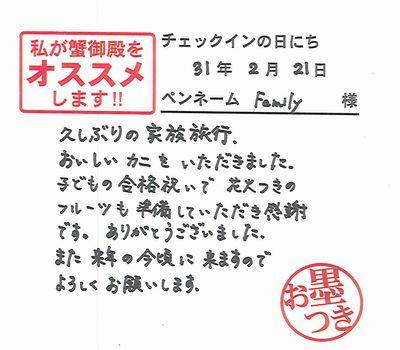 私が蟹御殿を
オススメ
します!!
チェックインの日にち
31年 2月 21日
ペンネーム Family 様
久しぶりの家族旅行、
おいしいカニをいただきました。
子どもの合格祝いで 花火つきの
フルーツも準備していただき感謝
です。ありがとうございました。
また来年の今頃に来ますので
よろしくお願いします。
お墨つき